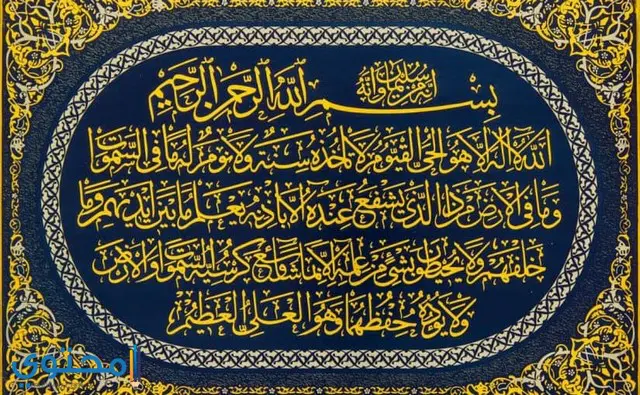 إنه من سليمان وإنه
بسم الله الرحمن الرحيم
الله لا إله إلا هو الحي القيوم لا تأخذه سنة ولا نوم له ما في السموات
وما في الأرض من ذا الذي يشفع عنده إلا بإذنه يعلم ما بين أيديهم وما
خلفهم ولا يحيطون بشيء من علمه إلا بما شاء وسع كرسيه السموات والأرض
ولا يؤده حفظهما وهو العلي العظيم
محتوى